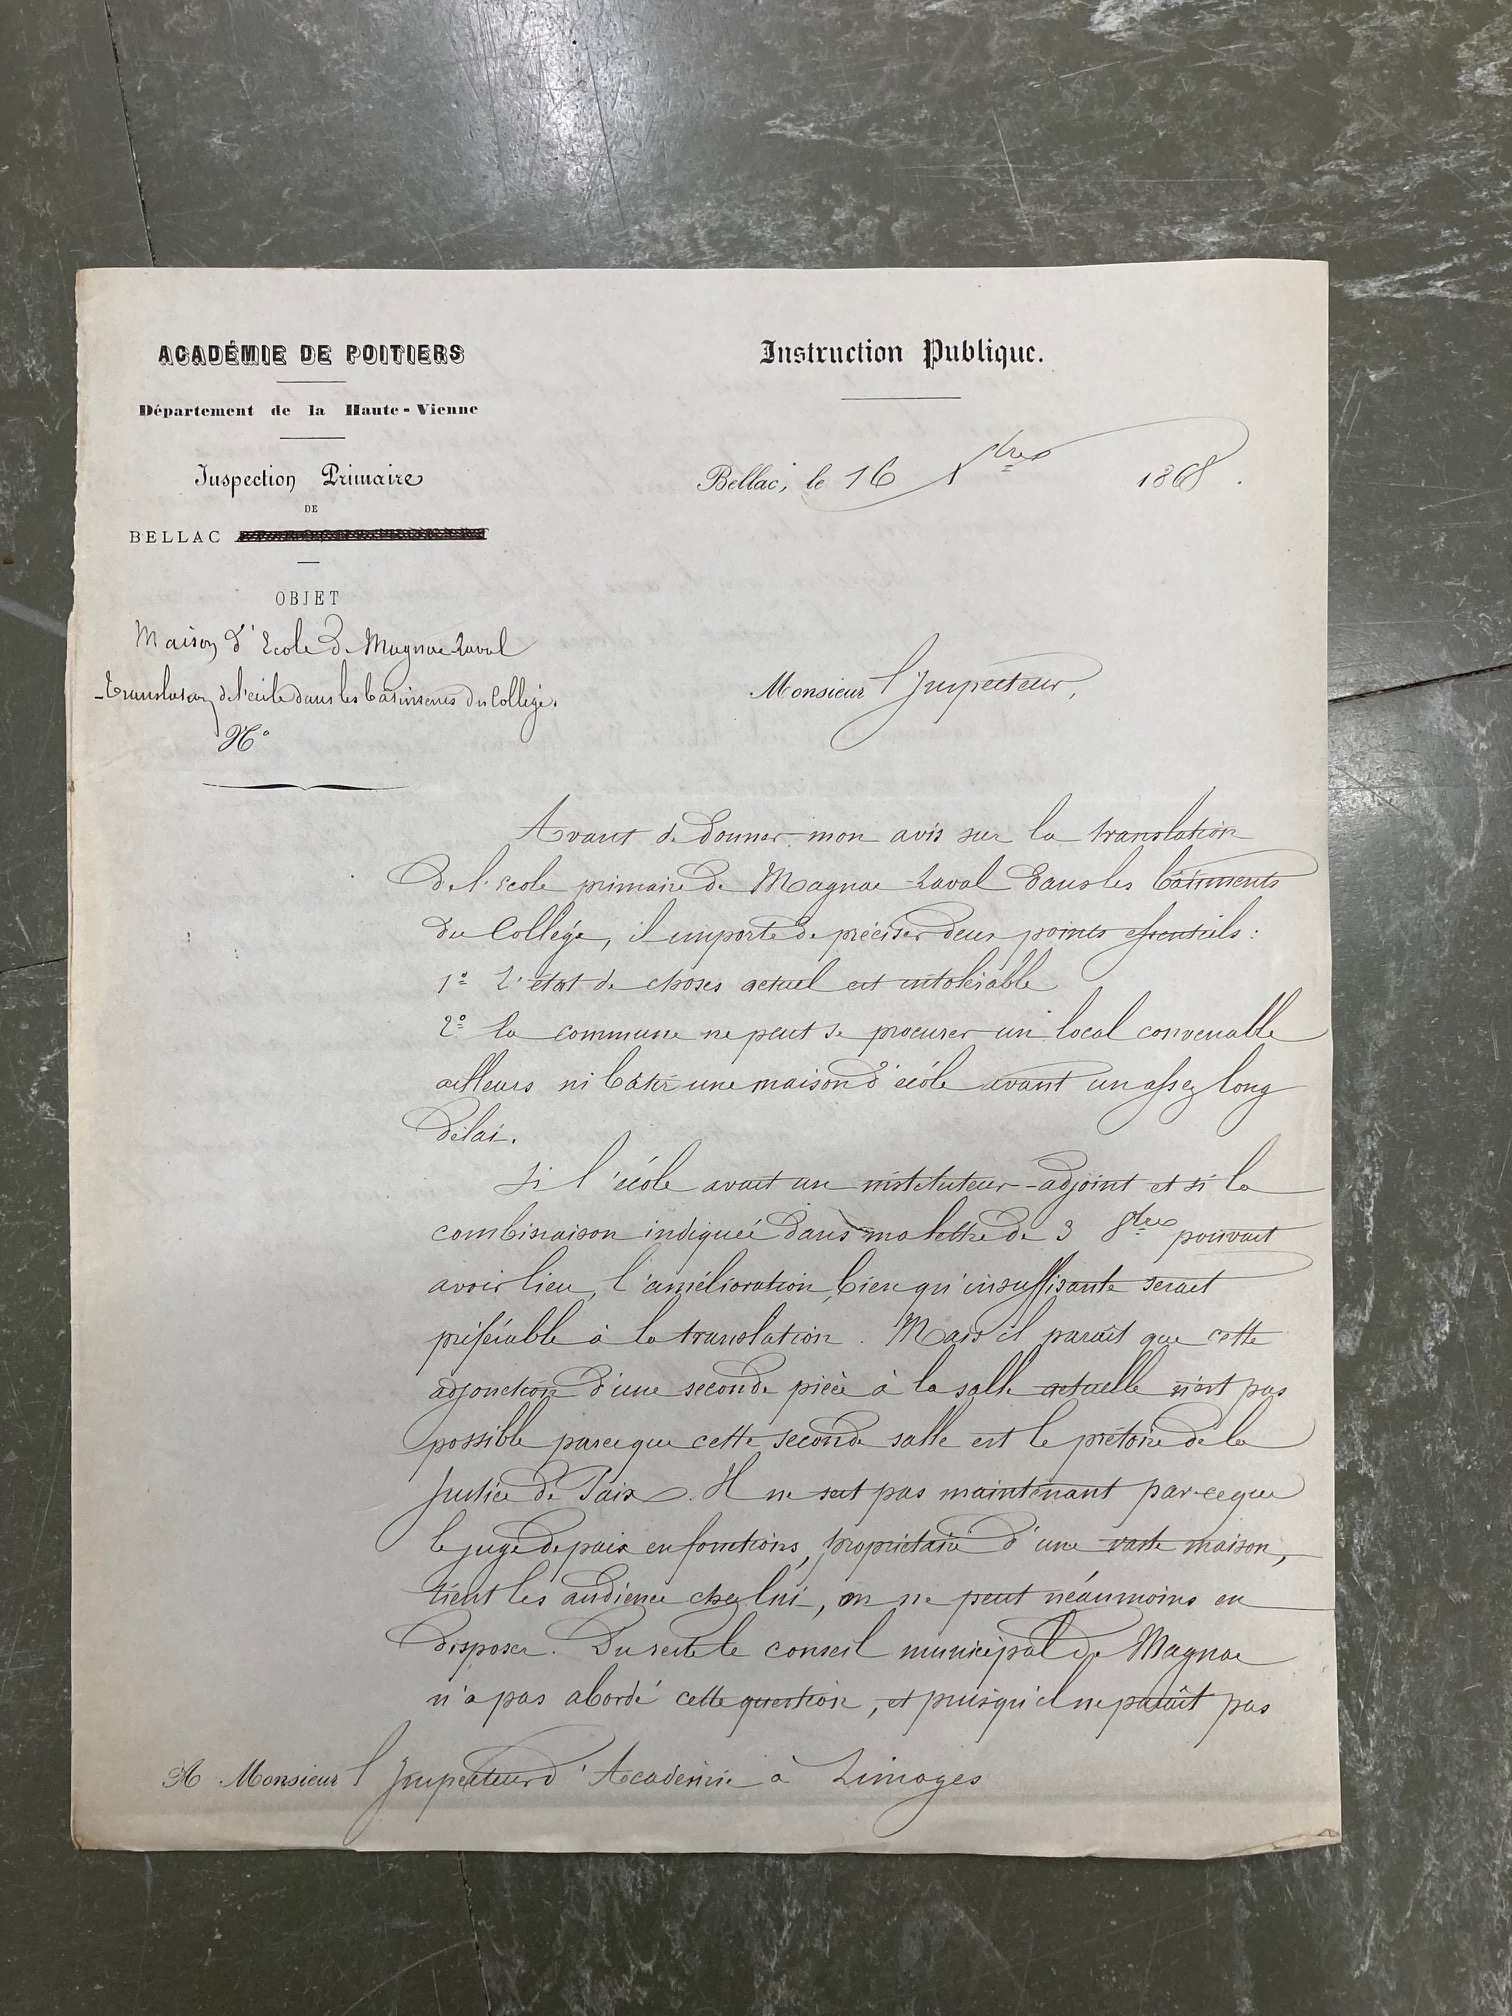 ACADÉMIE DE POITIERS
Département de la Haute-Vienne
Inspection Primaire
DE
BELLAC
OBJET
Maison d'Ecole de Magnac-Laval
-Translation de l'école dans les bâtiments du Collège.
N°
Instruction Publique.
Bellac, le 16 Xbre 1868.
Monsieur l'Inspecteur,
Avant de donner mon avis sur la translation
de l'école primaire de Magnac-Laval dans les bâtiments
du Collège, il importe de préciser deux points essentiels :
1° L'état de choses actuel est intolérable
2° la commune ne peut se procurer un local convenable
ailleurs ni bâtir une maison d'école avant un assez long
délai.
Si l'école avait un instituteur-adjoint et si la
combinaison indiquée dans ma lettre de 3 8bre pouvait
avoir lieu, l'amélioration, bien qu'insuffisante serait
préférable à la translation. Mais il parait que cette
adjonction d'une seconde pièce à la salle actuelle n'est pas
possible parceque cette seconde salle est le prétoire de la
Justice de Paix. Il ne sert pas maintenant parceque
le juge de paix en fonctions, propriétaire d'une vaste maison,
tient les audience chez lui, on ne peut néanmoins en
disposer. Du reste le conseil municipal de Magnac
n'a pas abordé cette question, et puisqu'il ne paraît pas
A Monsieur l'Inspecteur d'Académie à Limoges